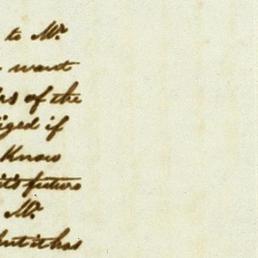 to Mr
want
of the
iged if
Know
it's future
Mr
but it has